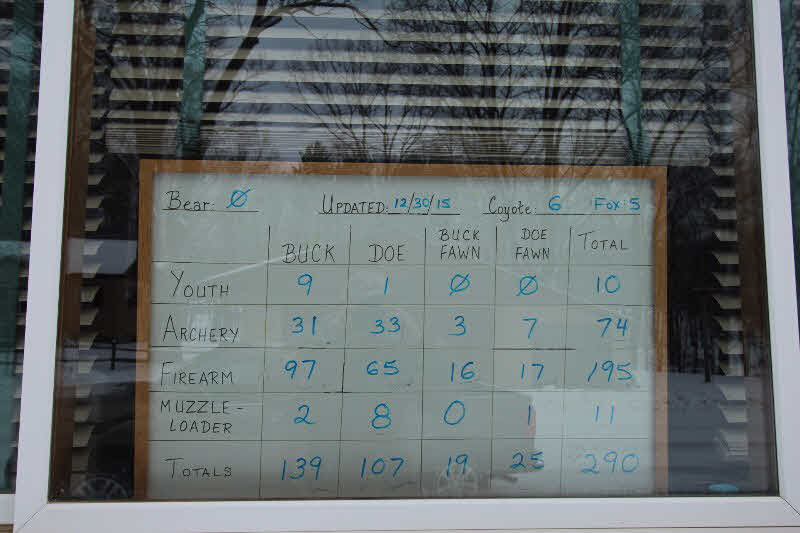 Bear: Ø UPDATED: 12/30/15 Coyote: 6 Fox: 5
BUCK DOE BUCK FAWN DOE FAWN TOTAL
YOUTH 9 1 Ø Ø 10
ARCHERY 31 33 3 7 74
FIREARM 97 65 16 17 195
MUZZLE-LOADER 2 8 0 1 11
TOTALS 139 107 19 25 290